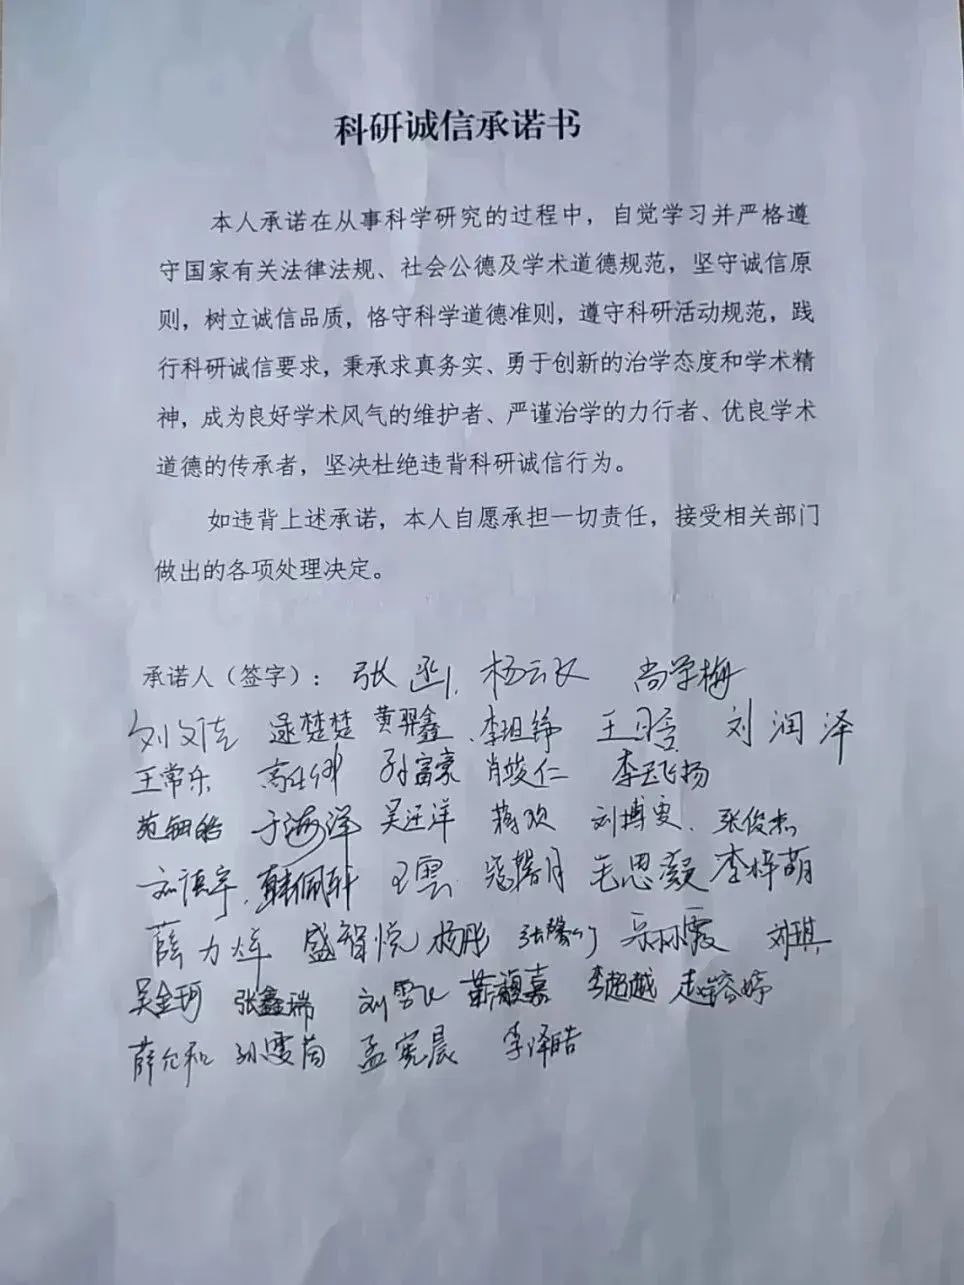 科研诚信承诺书
本人承诺在从事科学研究的过程中，自觉学习并严格遵
守国家有关法律法规、社会公德及学术道德规范，坚守诚信原
则，树立诚信品质，恪守科学道德准则，遵守科研活动规范，践
行科研诚信要求，秉承求真务实、勇于创新的治学态度和学术精
神，成为良好学术风气的维护者、严谨治学的力行者、优良学术
道德的传承者，坚决杜绝违背科研诚信行为。
如违背上述承诺，本人自愿承担一切责任，接受相关部门
做出的各项处理决定。
承诺人（签字）： 尚学梅
逯楚楚 黄羿鑫 刘润泽
王常乐 孙富豪 肖竣仁
于海洋 吴汪洋 蒋欢 刘博雯 张俊杰
韩佩轩 毛思毅 李梓萌
盛智悦 杨彤 刘琪
吴金珂 张鑫瑞 李超越
薛允和 孙雯茜 孟宪晨 李泽皓